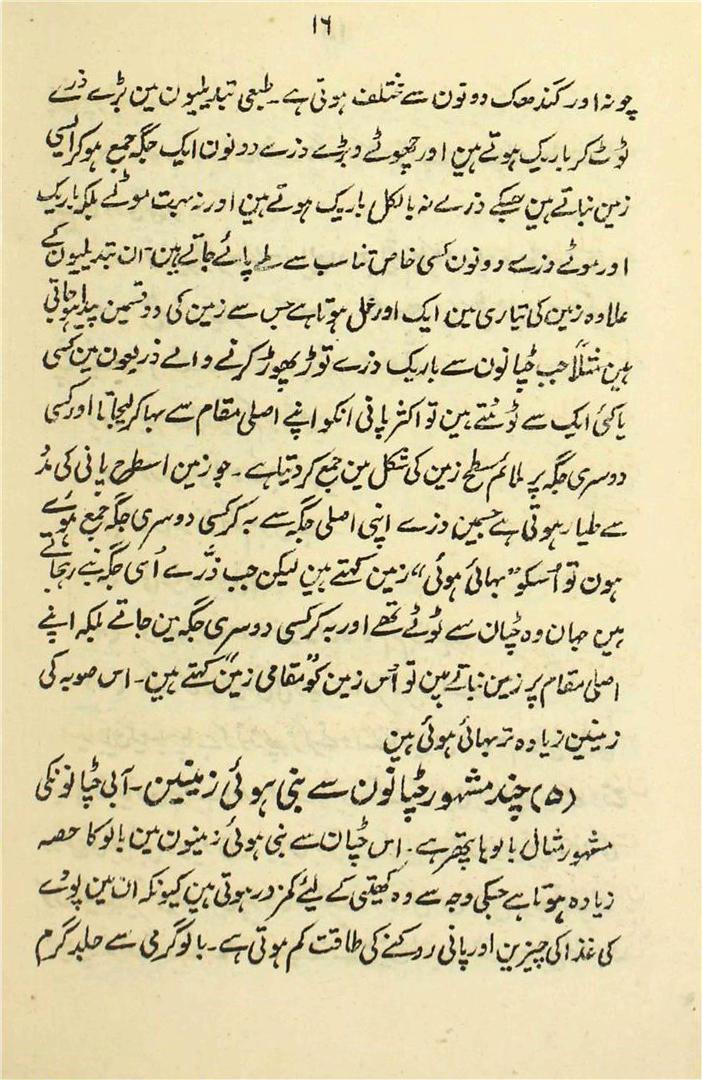 ۱۶
چونہ اور گندھک دونون سے مختلف ہوتی ہے۔ طبعی تبدیلیون مین بڑے ذرے
ٹوٹ کر باریک ہوتے ہین اور چھوٹے و بڑے ذرے دونون ایک جگہ جمع ہوکر ایسی
زمین بناتے ہین جسکے ذرے نہ بالکل باریک ہوتے ہین اور نہ بہت موٹے بلکہ باریک
اور موٹے ذرے دونون کسی خاص تناسب سے ملے پائے جاتے ہین۔ ان تبدیلیون کے
علاوہ زمین کی تیاری مین ایک اور عمل ہوتا ہے جس سے زمین کی دو قسمین پیدا ہوجاتی
ہین مثلاً جب چٹانون سے باریک ذرے توڑ پھوڑ کرنے والے ذریعون مین کسی
یا کئی ایک سے ٹوٹتے ہین تو اکثر پانی انکو اپنے اصلی مقام سے بہا کر لیجاتا اور کسی
دوسری جگہ پر ملائم سطح زمین کی شکل مین جمع کر دیتا ہے۔ جو زمین اسطرح پانی کی مدد
سے طیار ہوتی ہے جسمین ذرے اپنی اصلی جگہ سے بہ کر کسی دوسری جگہ جمع ہوئے
ہون تو اُسکو "بہائی ہوئی" زمین کہتے ہین لیکن جب ذرّے اُسی جگہ بنے رہجاتے
ہین جہان وہ چٹان سے ٹوٹے تھے اور بہ کر کسی دوسری جگہ نہین جاتے بلکہ اپنے
اصلی مقام پر زمین بناتے ہین تو اُس زمین کو "مقامی زمین" کہتے ہین۔ اس صوبہ کی
زمینین زیادہ تر بہائی ہوئی ہین
(۵) چند مشہور چٹانون سے بنی ہوئی زمینین۔ آبی چٹانونکی
مشہور مثال بالوہا پتھر ہے۔ اس چٹان سے بنی ہوئی زمینون مین بالو کا حصہ
زیادہ ہوتا ہے جسکی وجہ سے وہ کھیتی کے لیئے کمزور ہوتی ہین کیونکہ ان مین پودے
کی غذا کی چیزین اور پانی روکنے کی طاقت کم ہوتی ہے۔ بالو گرمی سے جلد گرم